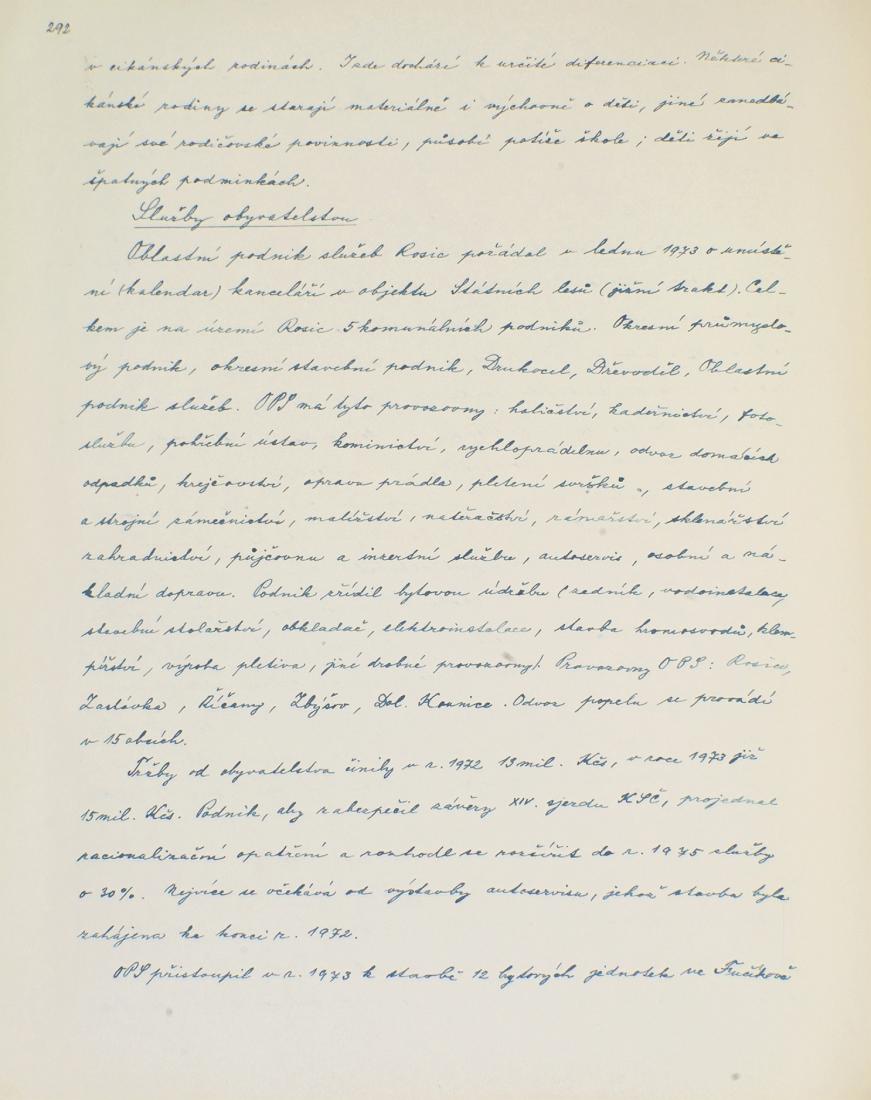 292
v cikánských rodinách. I zde dochází k určité diferenciaci. Některé ci-
kánské rodiny se starají materiálně i výchovně o děti, jiné zanedbá-
vají své rodičovské povinnosti, působí potíže škole; děti žijí ve
špatných podmínkách.
Služby obyvatelstvu
Oblastní podnik služeb Rosic požádal v lednu 1973 o umístě-
ní (kalendar) kanceláří v objektu Státních lesů (jižní trakt). Cel-
kem je na území Rosic 5 komunálních podniků. Okresní průmyslo-
vý podnik, okresní stavební podnik, Drukocel, Dřevoděl, Oblastní
podnik služeb. OPS má tyto provozovny: holičství, kadeřnictví, foto-
službu, pohřební ústav, kominictví, rychloprádelnu, odvoz domácích
odpadků, krejčovství, oprava prádla, pletení svršků, stavební
a strojní zámečnictví, malířství, natěračství, rámařství, sklenářství
zahradnictví, půjčovnu a inzertní službu, autoservis, osobní a ná-
kladní dopravu. Podnik zřídil bytovou údržbu (zedník, vodoinstalace,
stavební stolařství, obkladač, elektroinstalace, stavba hromosvodů, klem-
pířství, výroba pletiva, jiné drobné provozovny). Provozovny OPS: Rosice,
Zastávka, Říčany, Zbýšov, Dol. Kounice. Odvoz popela se provádí
v 15 obcích.
Tržby od obyvatelstva činily v r. 1972 13 mil. Kčs, v roce 1973 již
15 mil. Kčs. Podnik, aby zabezpečil závěry XIV. sjezdu KSČ, projednal
racionalizační opatření a rozhodl se rozšířit do r. 1975 služby
o 30%. Nejvíce se očekává od výstavby autoservisu, jehož stavba byla
zahájena ke konci r. 1972.
OPS přistoupil v r. 1973 k stavbě 12 bytových jednotek ve Fučíkově